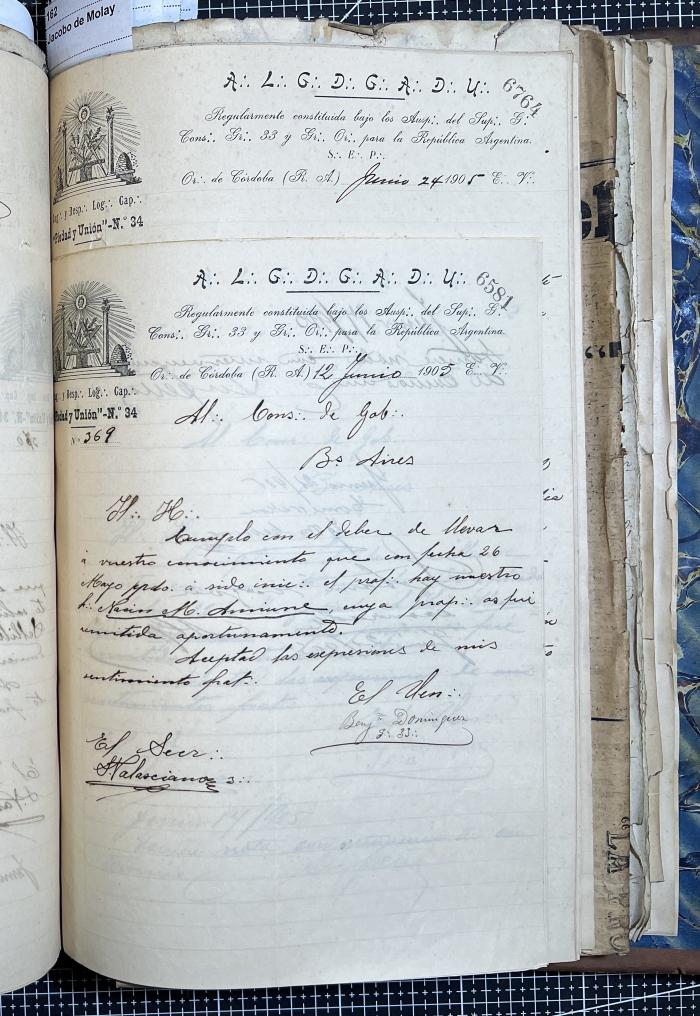 162
Jacobo de Molay
A∴ L∴ G∴ D∴ G∴ A∴ D∴ U∴
6764
Regularmente constituida bajo los Ausp∴ del Sup∴ G∴
Cons∴ Gr∴ 33 y Gr∴ Or∴ para la República Argentina.
S∴ E∴ P∴
Or∴ de Córdoba (R. A.) Junio 24 1905 E∴ V∴
y Resp∴ Log∴ Cap∴
"Piedad y Unión"-N.º 34
A∴ L∴ G∴ D∴ G∴ A∴ D∴ U∴
6581
Regularmente constituida bajo los Ausp∴ del Sup∴ G∴
Cons∴ Gr∴ 33 y Gr∴ Or∴ para la República Argentina.
S∴ E∴ P∴
Or∴ de Córdoba (R. A.) 12 Junio 1905 E∴ V∴
y Resp∴ Log∴ Cap∴
"Piedad y Unión"-N.º 34
Nº 369
Al∴ Cons∴ de Gob∴
Bs Aires
H∴ H∴
Cumplo con el deber de llevar
á vuestro conocimiento que con fecha 26
Mayo ppdo. á sido inic∴ el prof∴ hoy nuestro
h∴ Nacin M. cuya prop∴ os fué
remitida oportunamente.
Aceptad las expresiones de mis
sentimiento frat∴
El Ven∴
Benjn Dominguez
g∴ 33∴
El Secr∴
3∴